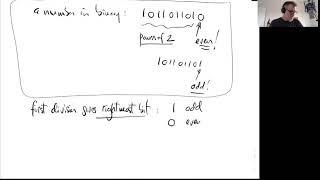 a number in binary: 1011011010
powers of 2 even!
101101101
odd!
first division gives rightmost bit: 1 odd
0 even